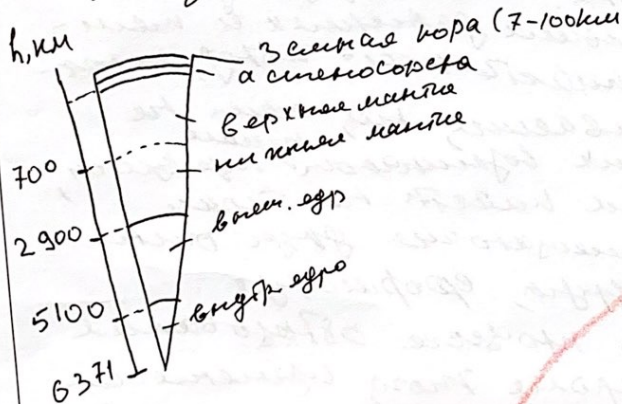 h, км
Земная кора (7-100км
астеносфера
верхняя мантия
нижняя мантия
700
внеш. ядро
2900
внутр. ядро
5100
6371